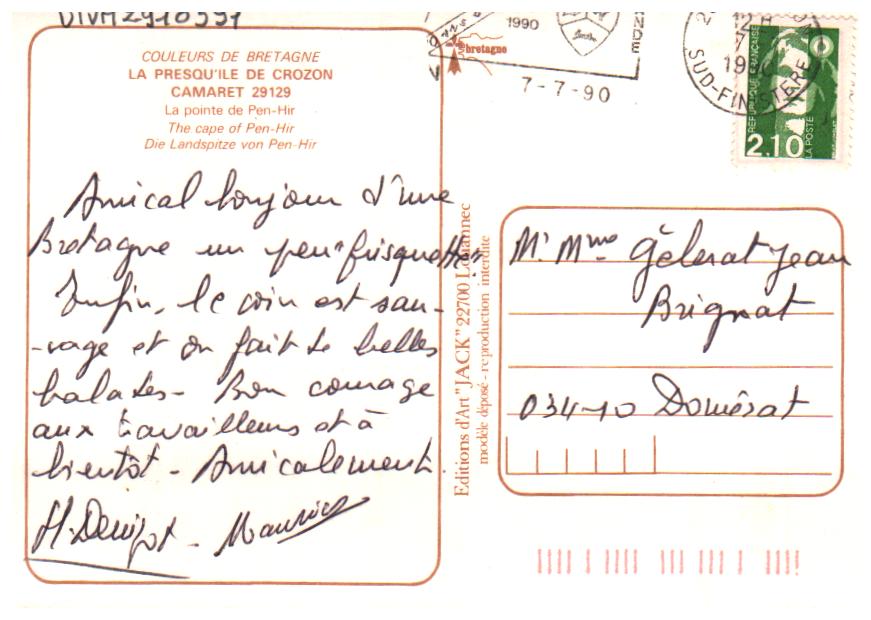 DIVM2910391
COULEURS DE BRETAGNE
LA PRESQU'ILE DE CROZON
CAMARET 29129
La pointe de Pen-Hir
The cape of Pen-Hir
Die Landspitze von Pen-Hir
Amical bonjour d'une
Bretagne un peu "frisquette"
Enfin, le coin est sau-
-vage et on fait de belles
balades - Bon courage
aux travailleurs et à
bientôt - Amicalement
Maurice
Editions d'Art "JACK" 22700 Louannec
modèle déposé - reproduction interdite
1990
bretagne
7-7-90
12 H
7
SUD-FINISTERE
REPUBLIQUE FRANÇAISE
2,10
LA POSTE
Mr Mme Gélerat Jean
Brignat
03410 Domérat